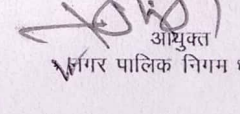 आयुक्त
नगर पालिक निगम